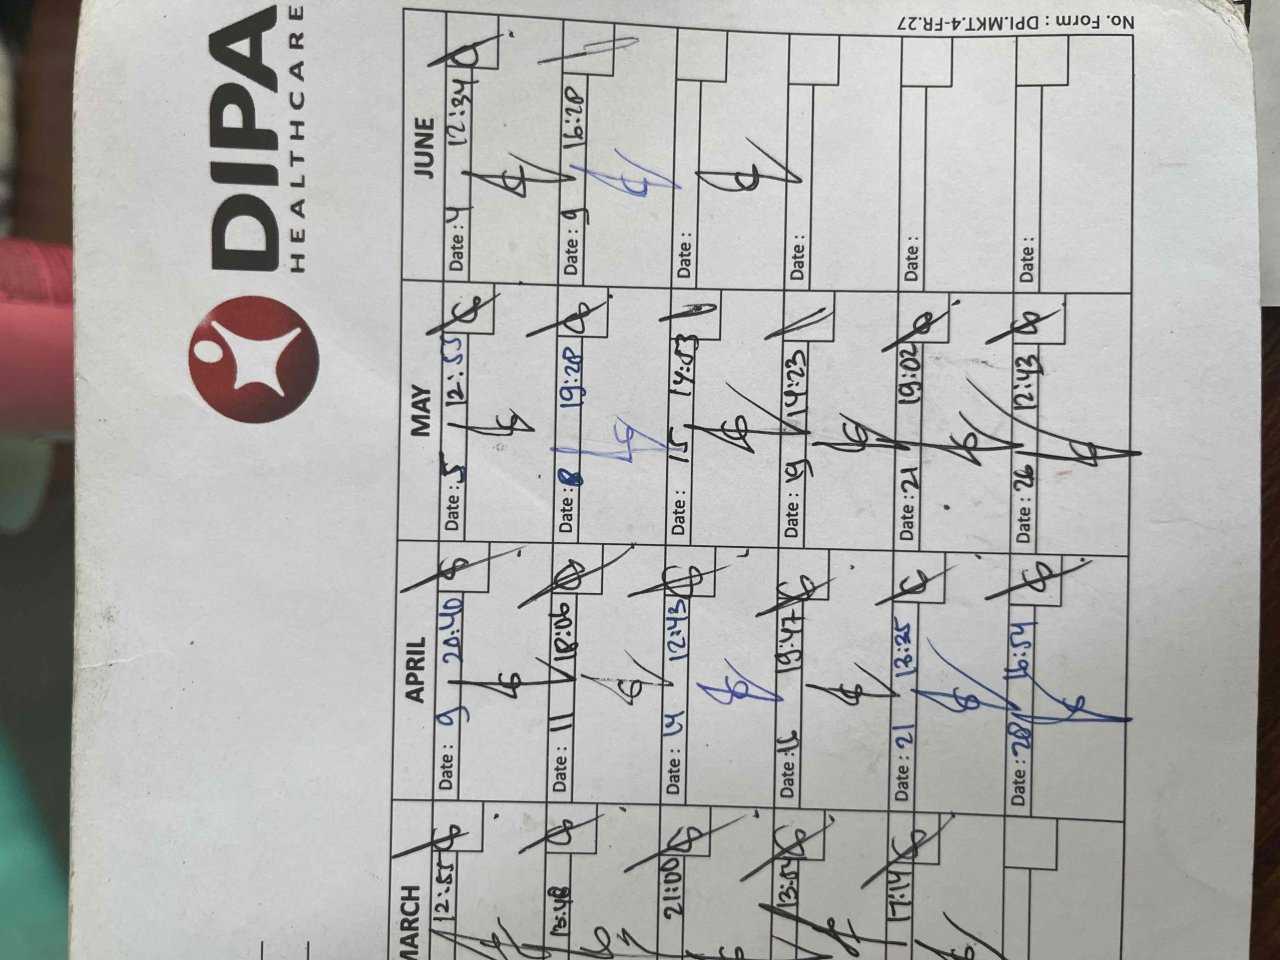 DIPA
HEALTHCARE
No. Form : DPI.MKT.4-FR.27
MARCH
12:55
13:48
21:00
13:54
17:14
APRIL
Date : 9 20:40
Date : 11 18:06
Date : 14 12:43
Date : 16 19:47
Date : 21 13:35
Date : 28 16:54
MAY
Date : 5 12:55
Date : 8 19:28
Date : 15 14:03
Date : 19 14:23
Date : 21 19:02
Date : 26 12:43
JUNE
Date : 4 12:34
Date : 9 16:28
Date :
Date :
Date :
Date :